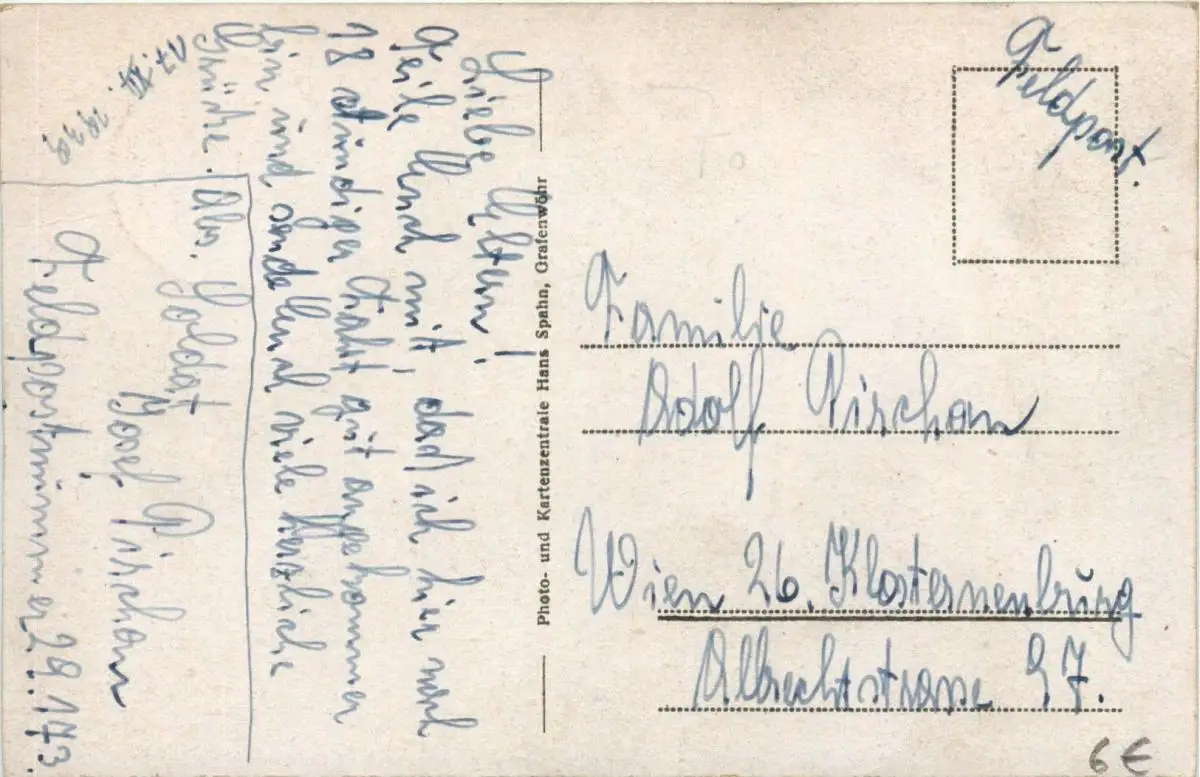 17. XII. 1939.
Liebe Eltern!
Teile Euch mit, daß ich hier nach
18 stündiger Fahrt gut angekommen
bin und sende Euch viele herzliche
Grüße. Abs. Soldat
Josef Pirchan
Feldpostnummer 29.173.
Photo- und Kartenzentrale Hans Spahn, Grafenwöhr
Feldpost.
Familie
Adolf Pirchan
Wien 26. Klosterneuburg
Albrechtstrasse 97.
6 €